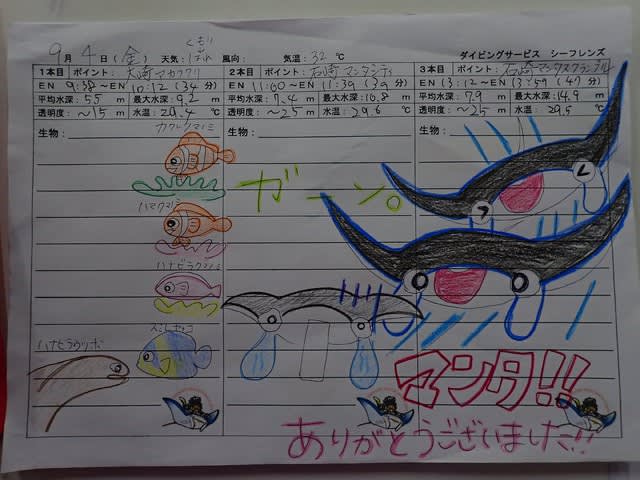 9月 4日(金) 天気: くもり はれ 風向: 気温: 32 ℃
ダイビングサービス シーフレンズ
1本目 ポイント: 大崎
EN 9:38～EN 10:12 (34分)
平均水深: 5.5 m 最大水深: 9.2 m
透明度: ～15 m 水温: 29.4 ℃
生物:
カクレクマノミ
ハマクマノミ
ハナビラクマノミ
ハナビラウツボ
2本目 ポイント: 石崎 マンタシティ
EN 11:00～EN 11:39 (39分)
平均水深: 7.4 m 最大水深: 10.8 m
透明度: ～25 m 水温: 29.6 ℃
生物:
ガーン。
3本目 ポイント: 石崎マンタスクランブル
EN 13:12～EN 13:59 (47分)
平均水深: 7.9 m 最大水深: 14.9 m
透明度: ～25 m 水温: 29.5 ℃
生物:
マンタ!!
ありがとうございました!!